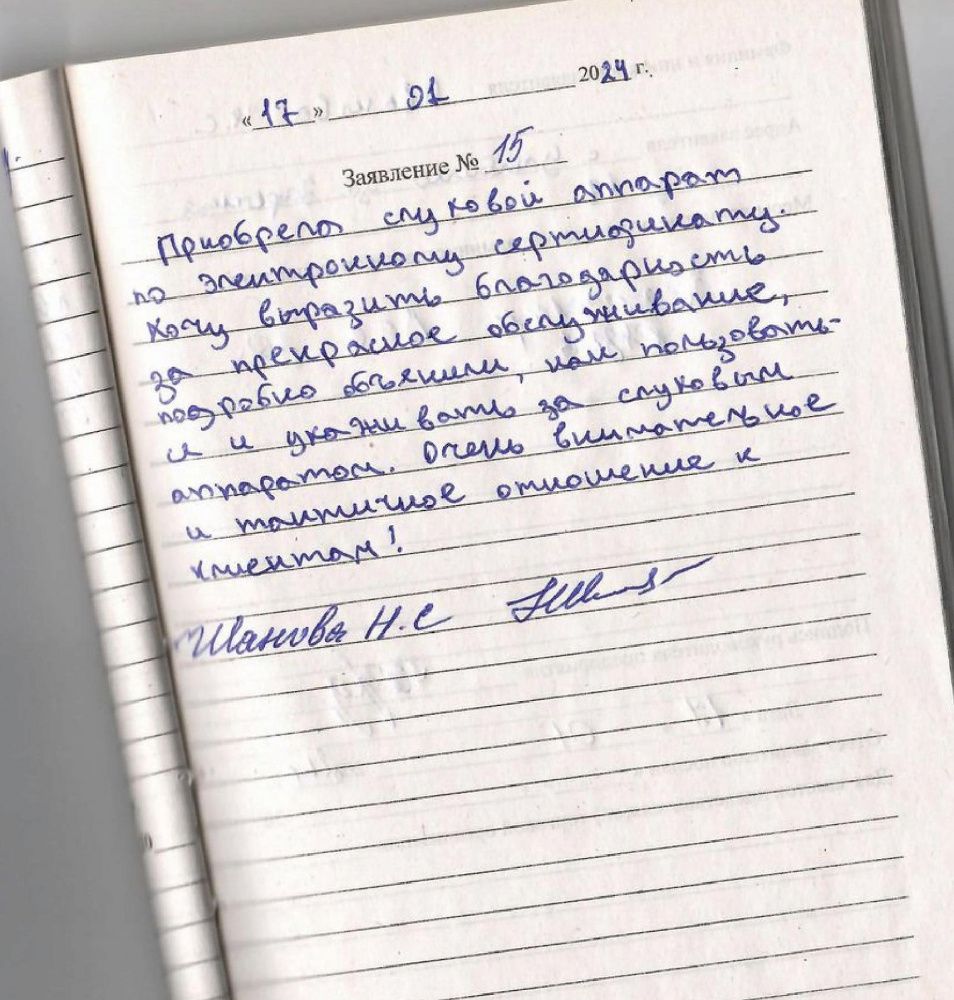 «17» 01 2024 г.
Заявление № 15
Приобрела слуховой аппарат
по электронному сертификату.
Хочу выразить благодарность
за прекрасное обслуживание,
подробно объяснили, как пользовать-
ся и ухаживать за слуховым
аппаратом. Очень внимательное
и тактичное отношение к
клиентам!
Шанова Н.С